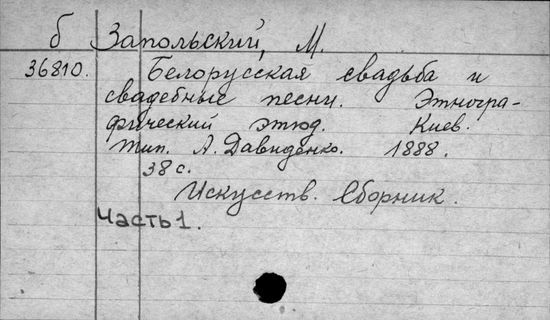 б Запольский, М.
36810. Белорусская свадьба и
свадебные песни. Этногра-
фический этюд. Киев.
тип. А. Давиденко. 1888.
38 с.
Искусств. Сборник.
Часть 1.